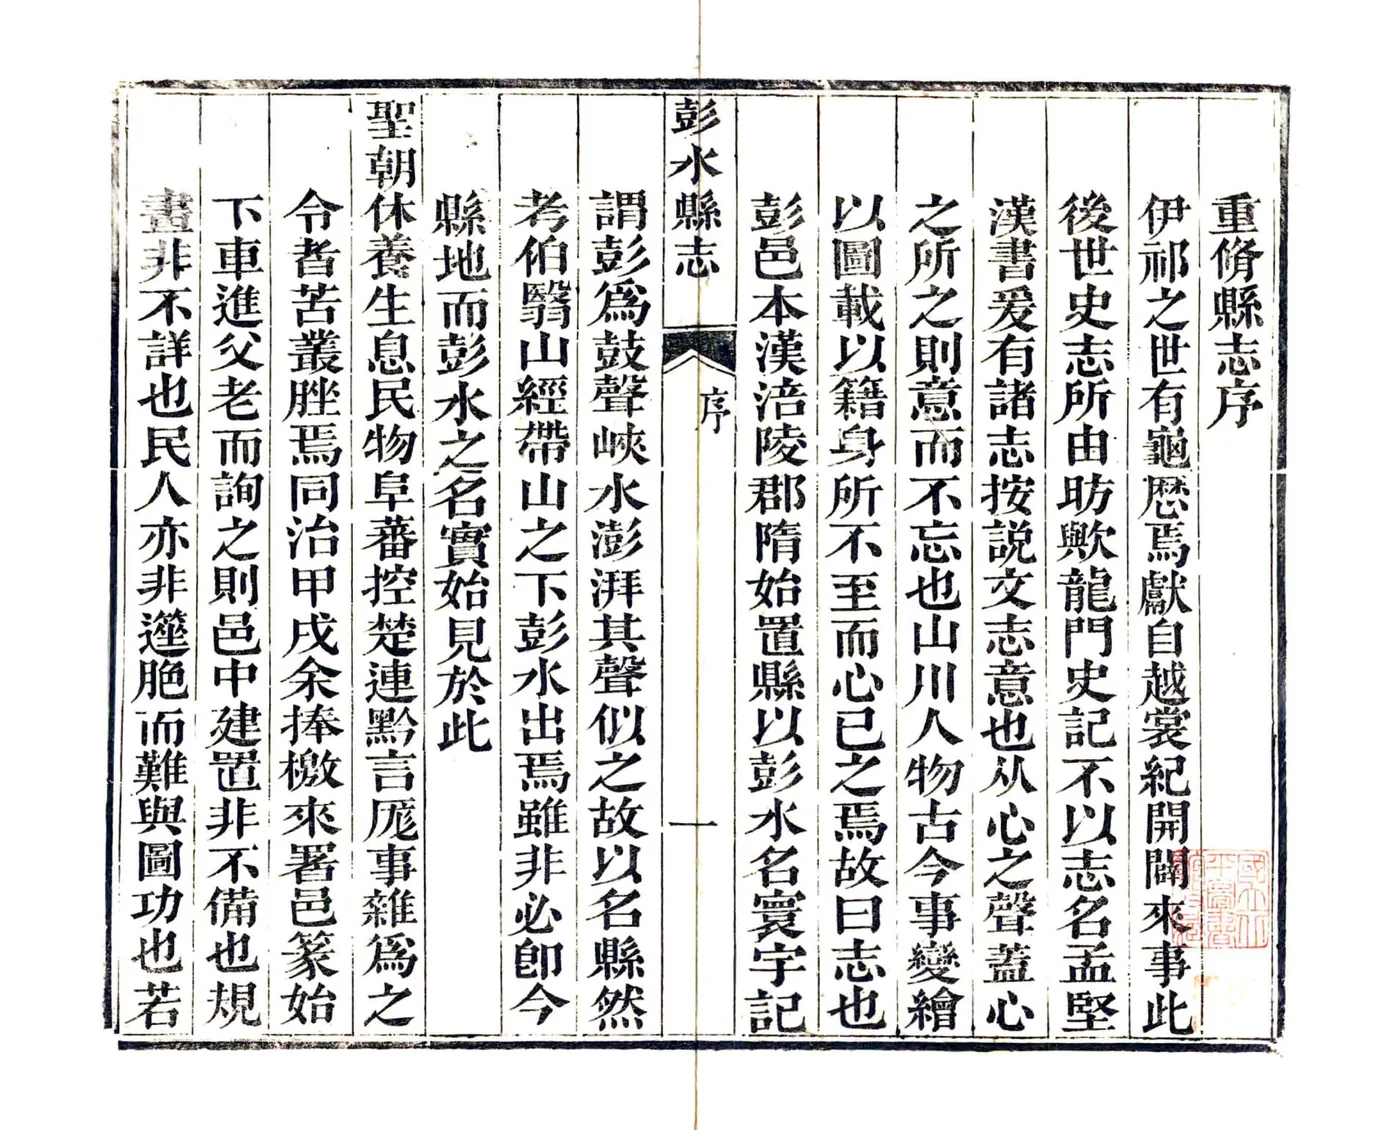 重脩縣志序
伊祁之世有龜歷焉獻自越裳紀開闢來事此
後世史志所由昉歟龍門史記不以志名孟堅
漢書爰有諸志按說文志意也从心之聲蓋心
之所之則意而不忘也山川人物古今事變繪
以圖載以籍身所不至而心已之焉故曰志也
彭邑本漢涪陵郡隋始置縣以彭水名寰宇記
彭水縣志
序
一
謂彭爲鼓聲峽水澎湃其聲似之故以名縣然
考伯翳山經帶山之下彭水出焉雖非必卽今
縣地而彭水之名實始見於此
聖朝休養生息民物阜蕃控楚連黔言厖事雜爲之
令者苦叢脞焉同治甲戌余捧檄來署邑篆始
下車進父老而詢之則邑中建置非不備也規
畫非不詳也民人亦非遰脃而難與圖功也若